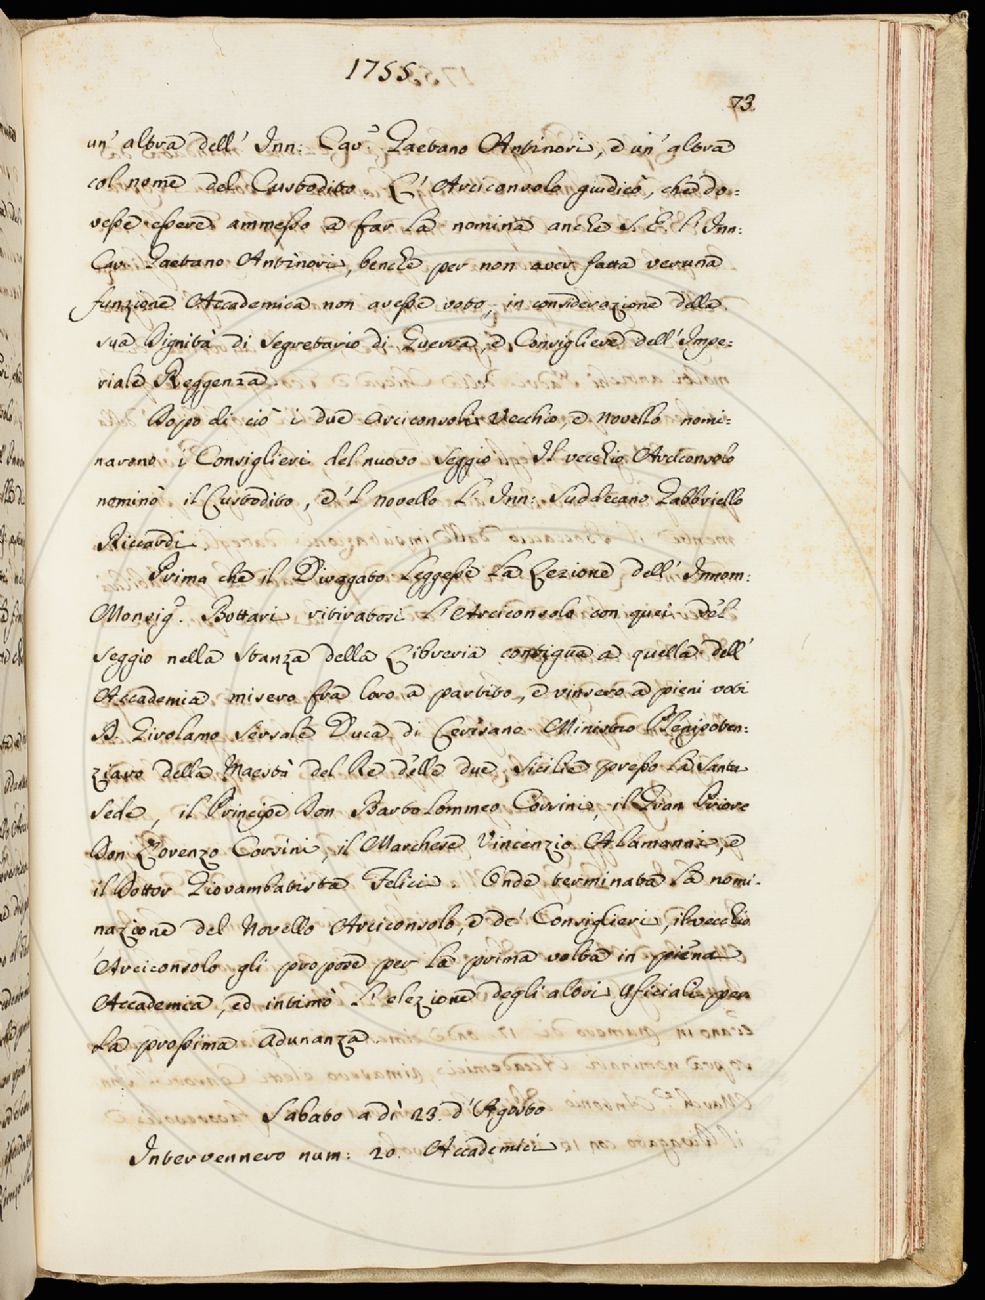 1755
73
un' altra dell' Inn: Cav.e Gaetano Antinori, e un' altra
col nome del Custodito. L' Arciconsolo giudicò, che do:
vesse essere ammesso a far la nomina anche S. E. l' Inn:
Cav. Gaetano Antinori, benchè per non aver fatta veruna
funzione Accademica non avesse voto, in considerazione della
sua Dignità di Segretario di Guerra, e Consigliere dell' Impe:
riale Reggenza.
Dopo di ciò i due Arciconsoli Vecchio, e Novello nomi:
narono i Consiglieri del nuovo Seggio. Il vecchio Arciconsolo
nominò il Custodito, e 'l novello l' Inn: Suddecano Gabbriello
Riccardi.
Prima che il Divagato leggesse la Lezione dell' Innom:
Monsig.r Bottari ritiratosi l' Arciconsolo con quei del
Seggio nella Stanza della Libreria contigua a quella dell'
Accademia misero fra loro a partito, e vinsero a pieni voti
D. Girolamo Sersale Duca di Cerisano Ministro Plenipoten:
ziario della Maestà del Re delle due Sicilie presso la Santa
Sede, il Principe Don Bartolommeo Corsini, il Gran Priore
Don Lorenzo Corsini, il Marchese Vincenzio Alamanni, e
il Dottor Giovambatista Felici. Onde terminata la nomi:
nazione del Novello Arciconsolo, e de' Consiglieri, il vecchio
Arciconsolo gli propose per la prima volta in piena
Accademia, ed intimò l' elezione degli altri Ufiziali per
la prossima adunanza.
Sabato a dì 23. d' Agosto
Intervennero num: 20. Accademici